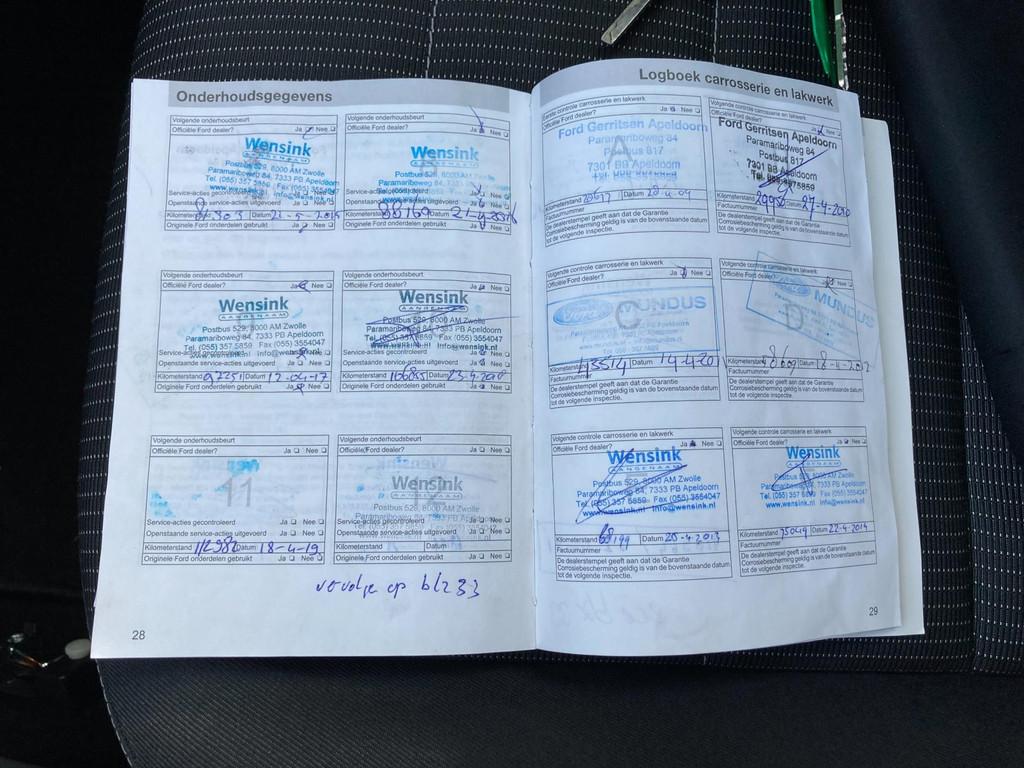 Onderhoudsgegevens
Volgende onderhoudsbeurt
Officiële Ford dealer? Ja Nee
Wensink
Postbus 529, 8000 AM Zwolle
Paramariboweg 84, 7333 PB Apeldoorn
Tel. (055) 357 5859 Fax (055) 3554047
www.wensink.nl info@wensink.nl
Service-acties gecontroleerd
Openstaande service-acties uitgevoerd Ja Nee
Kilometerstand 81303 Datum 21-5-2015
Originele Ford onderdelen gebruikt Ja Nee
Volgende onderhoudsbeurt
Officiële Ford dealer? Ja Nee
Wensink
Postbus 529, 8000 AM Zwolle
Paramariboweg 84, 7333 PB Apeldoorn
Openstaande service-acties uitgevoerd Ja Nee
Kilometerstand 88169 Datum 21-4-2016
Originele Ford onderdelen gebruikt Ja Nee
Volgende onderhoudsbeurt
Officiële Ford dealer? Ja Nee
Wensink
AANGENAAM
Postbus 529, 8000 AM Zwolle
Paramariboweg 84, 7333 PB Apeldoorn
Tel. (055) 357 5859 Fax (055) 3554047
www.wensink.nl info@wensink.nl
Service-acties gecontroleerd
Openstaande service-acties uitgevoerd Ja Nee
Kilometerstand 97251 Datum 12-04-17
Originele Ford onderdelen gebruikt Ja Nee
Volgende onderhoudsbeurt
Officiële Ford dealer? Ja Nee
Wensink
AANGENAAM
Postbus 529, 8000 AM Zwolle
Paramariboweg 84, 7333 PB Apeldoorn
Tel. (055) 357 5859 Fax (055) 3554047
www.wensink.nl info@wensink.nl
Service-acties gecontroleerd Ja Nee
Openstaande service-acties uitgevoerd Ja Nee
Kilometerstand 106855 Datum 23-4-2018
Originele Ford onderdelen gebruikt Ja Nee
Volgende onderhoudsbeurt
Officiële Ford dealer? Ja Nee
11
Service-acties gecontroleerd Ja Nee
Openstaande service-acties uitgevoerd Ja Nee
Kilometerstand 112980 Datum 18-4-19
Originele Ford onderdelen gebruikt Ja Nee
Volgende onderhoudsbeurt
Officiële Ford dealer? Ja Nee
Wensink
AANGENAAM
Postbus 529, 8000 AM Zwolle
Paramariboweg 84, 7333 PB Apeldoorn
Service-acties gecontroleerd Ja Nee
Openstaande service-acties uitgevoerd Ja Nee
Kilometerstand Datum
Originele Ford onderdelen gebruikt Ja Nee
vervolg op blz 33
28
Logboek carrosserie en lakwerk
Eerste controle carrosserie en lakwerk
Officiële Ford dealer? Ja Nee
A
Ford Gerritsen Apeldoorn
Paramariboweg 84
Postbus 817
7301 BB Apeldoorn
Kilometerstand 20617 Datum
Factuurnummer
De dealerstempel geeft aan dat de Garantie
Corrosiebescherming geldig is van de bovenstaande datum
tot de volgende inspectie.
Volgende controle carrosserie en lakwerk
Officiële Ford dealer? Ja Nee
Ford Gerritsen Apeldoorn
Paramariboweg 84
Postbus 817
7301 BB Apeldoorn
Kilometerstand 29950 Datum 27-4-2010
Factuurnummer
De dealerstempel geeft aan dat de Garantie
Corrosiebescherming geldig is van de bovenstaande datum
tot de volgende inspectie.
Volgende controle carrosserie en lakwerk
Officiële Ford dealer? Ja Nee
Ford MUNDUS
C
Kilometerstand 43514 Datum 14-4-201
Factuurnummer
De dealerstempel geeft aan dat de Garantie
Corrosiebescherming geldig is van de bovenstaande datum
tot de volgende inspectie.
Volgende controle carrosserie en lakwerk
Officiële Ford dealer? Nee
Ford MUNDUS
D
Kilometerstand Datum 18-4-2012
Factuurnummer
De dealerstempel geeft aan dat de Garantie
Corrosiebescherming geldig is van de bovenstaande datum
tot de volgende inspectie.
Volgende controle carrosserie en lakwerk
Officiële Ford dealer? Ja Nee
Wensink
AANGENAAM
Postbus 529, 8000 AM Zwolle
Paramariboweg 84, 7333 PB Apeldoorn
Tel. (055) 357 5859 Fax (055) 3554047
www.wensink.nl info@wensink.nl
Kilometerstand Datum 20-4-2013
Factuurnummer
De dealerstempel geeft aan dat de Garantie
Corrosiebescherming geldig is van de bovenstaande datum
tot de volgende inspectie.
Volgende controle carrosserie en lakwerk
Officiële Ford dealer? Ja Nee
Wensink
AANGENAAM
Postbus 529, 8000 AM Zwolle
Paramariboweg 84, 7333 PB Apeldoorn
Tel. (055) 357 5859 Fax (055) 3554047
www.wensink.nl info@wensink.nl
Kilometerstand 75049 Datum 22-4-2014
Factuurnummer
De dealerstempel geeft aan dat de Garantie
Corrosiebescherming geldig is van de bovenstaande datum
tot de volgende inspectie.
29